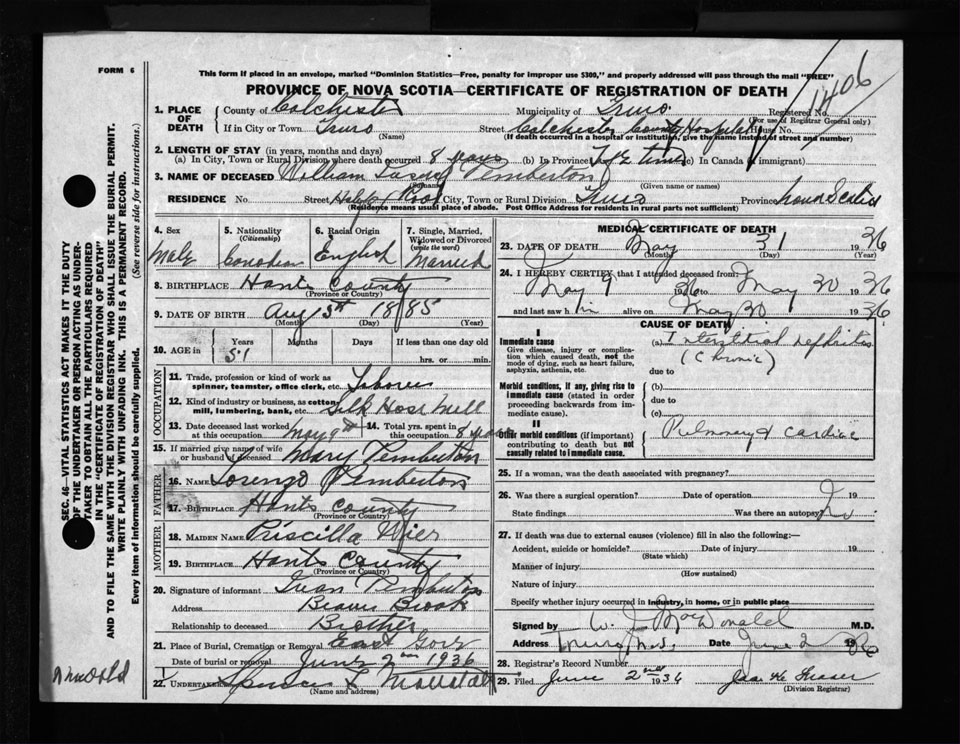 FORM 6
This form if placed in an envelope, marked "Dominion Statistics—Free, penalty for improper use $300," and properly addressed will pass through the mail "FREE"
PROVINCE OF NOVA SCOTIA—CERTIFICATE OF REGISTRATION OF DEATH
1406
1. PLACE OF DEATH County of Colchester Municipality of Truro Registered No.
(For use of Registrar General only)
If in City or Town Truro (Name) Street Colchester County Hospital House No.
(If death occurred in a hospital or institution, give the name instead of street and number)
2. LENGTH OF STAY (in years, months and days)
(a) In City, Town or Rural Division where death occurred 8 years (b) In Province Life time (c) In Canada (if immigrant)
3. NAME OF DECEASED William Pemberton
(Surname) (Given name or names)
RESIDENCE No. Street Road City, Town or Rural Division Truro Province Nova Scotia
(Residence means usual place of abode. Post Office Address for residents in rural parts not sufficient)
4. Sex Male
5. Nationality (Citizenship) Canadian
6. Racial Origin English
7. Single, Married, Widowed or Divorced (write the word) Married
8. BIRTHPLACE Hants County
(Province or Country)
9. DATE OF BIRTH Aug 1885
(Month) (Day) (Year)
10. AGE in Years 51 Months Days If less than one day old hrs. or min.
OCCUPATION
11. Trade, profession or kind of work as spinner, teamster, office clerk, etc. Laborer
12. Kind of industry or business, as cotton mill, lumbering, bank, etc. Silk Hose Mill
13. Date deceased last worked at this occupation May 9th 14. Total yrs. spent in this occupation 8 years
15. If married give name of wife or husband of deceased Mary Pemberton
FATHER
16. NAME Lorenzo Pemberton
17. BIRTHPLACE Hants County
(Province or Country)
MOTHER
18. MAIDEN NAME Priscilla Wier
19. BIRTHPLACE Hants County
(Province or Country)
20. Signature of informant Pemberton
Address Beaver Brook
Relationship to deceased Brother
21. Place of Burial, Cremation or Removal East Gore
Date of burial or removal June 2nd 1936
22. UNDERTAKER
(Name and address)
MEDICAL CERTIFICATE OF DEATH
23. DATE OF DEATH May 31 1936
(Month) (Day) (Year)
24. I HEREBY CERTIFY that I attended deceased from:
May 9 1936 to May 30 1936
and last saw him alive on May 30 1936
CAUSE OF DEATH
I
Immediate cause
Give disease, injury or complication which caused death, not the mode of dying, such as heart failure, asphyxia, asthenia, etc.
(a) Interstitial nephritis
(Chronic)
due to
Morbid conditions, if any, giving rise to immediate cause (stated in order proceeding backwards from immediate cause).
(b)
due to
(c)
II
Other morbid conditions (if important) contributing to death but not causally related to immediate cause.
Pulmonary & cardiac
25. If a woman, was the death associated with pregnancy?
26. Was there a surgical operation? Date of operation 19
State findings Was there an autopsy? No
27. If death was due to external causes (violence) fill in also the following:—
Accident, suicide or homicide? Date of injury 19
(State which)
Manner of injury
(How sustained)
Nature of injury
Specify whether injury occurred in industry, in home, or in public place
Signed by W. J. MacDonald M.D.
Address Truro N.S. Date June 2 1936
28. Registrar's Record Number
29. Filed June 2nd 1936
(Division Registrar)
SEC. 46—VITAL STATISTICS ACT MAKES IT THE DUTY
OF THE UNDERTAKER OR PERSON ACTING AS UNDERTAKER
TO OBTAIN ALL THE PARTICULARS REQUIRED
IN THE "CERTIFICATE OF REGISTRATION OF DEATH"
AND TO FILE THE SAME WITH THE DIVISION REGISTRAR WHO SHALL ISSUE THE BURIAL PERMIT.
WRITE PLAINLY WITH UNFADING INK. THIS IS A PERMANENT RECORD.
Every item of information should be carefully supplied. (See reverse side for instructions.)